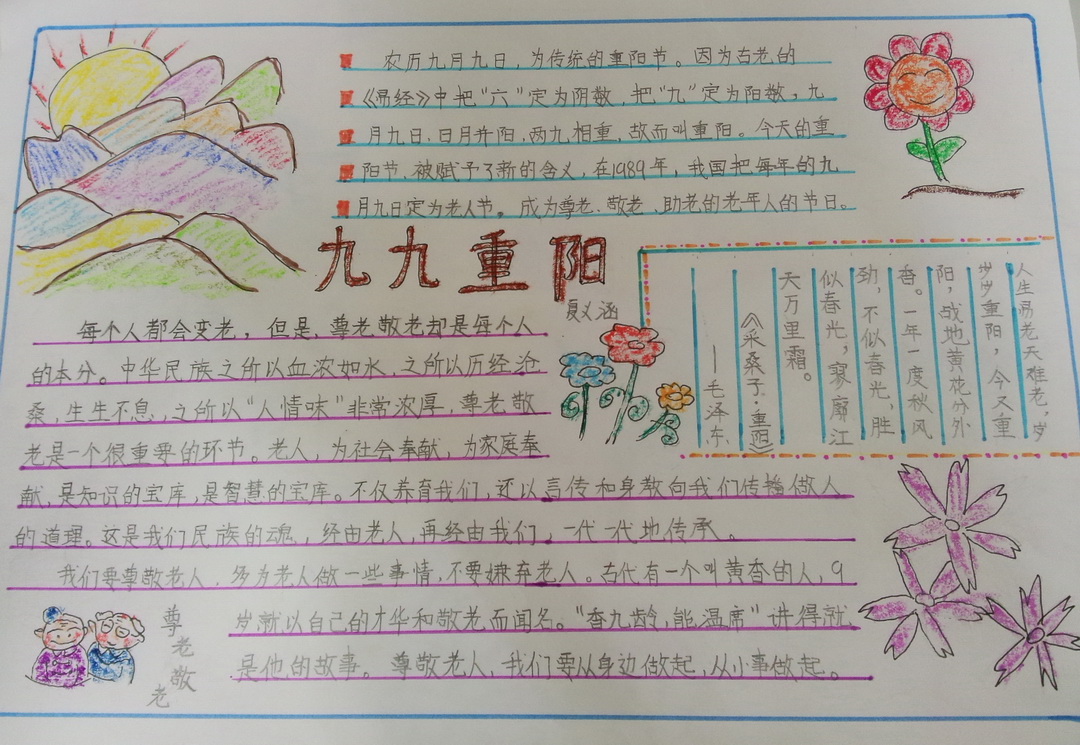 农历九月九日，为传统的重阳节。因为古老的
《易经》中把“六”定为阴数，把“九”定为阳数，九
月九日，日月并阳，两九相重，故而叫重阳。今天的重
阳节、被赋予了新的含义，在1989年，我国把每年的九
月九日定为老人节。成为尊老、敬老、助老的老年人的节日。
九九重阳
夏义涵
人生易老天难老，岁
岁重阳，今又重
阳，战地黄花分外
香。一年一度秋风
劲，不似春光，胜
似春光，寥廓江
天万里霜。
《采桑子·重阳》
——毛泽东
每个人都会变老，但是、尊老敬老却是每个人
的本分。中华民族之所以血浓如水，之所以历经沧
桑，生生不息，之所以“人情味”非常浓厚，尊老敬
老是一个很重要的环节。老人，为社会奉献，为家庭奉
献，是知识的宝库，是智慧的宝库。不仅养育我们，还以言传和身教向我们传播做人
的道理。这是我们民族的魂，经由老人，再经由我们，一代一代地传承。
我们要尊敬老人，多为老人做一些事情，不要嫌弃老人。古代有一个叫黄香的人，9
岁就以自己的才华和敬老而闻名。“香九龄，能温席”讲得就
是他的故事。尊敬老人，我们要从身边做起，从小事做起。
尊老敬老